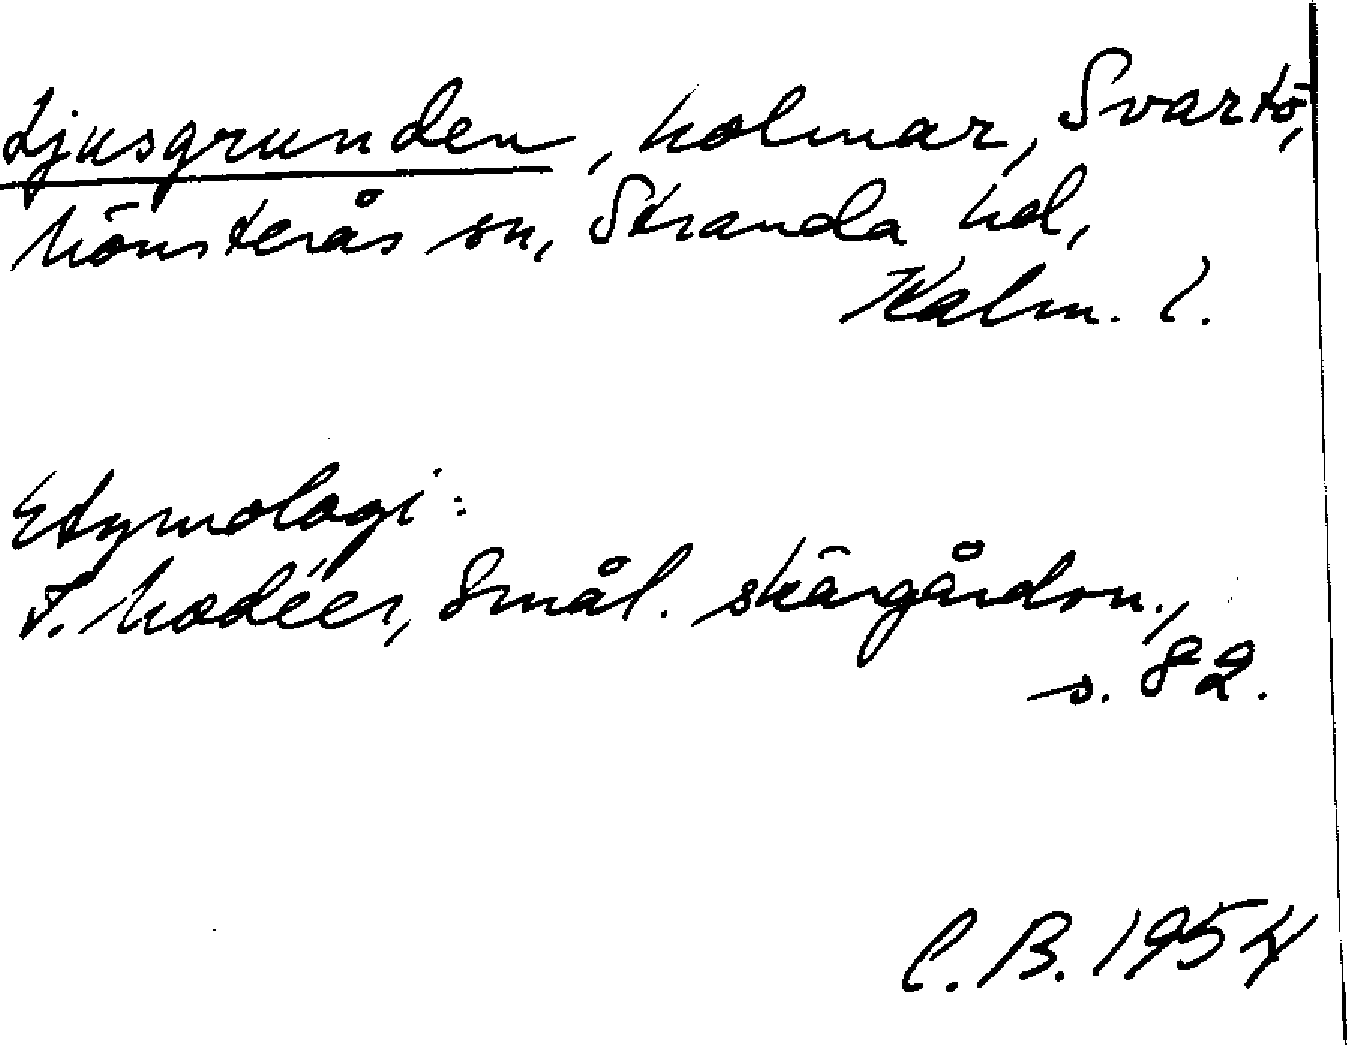 Ljusgrunden, holmar, Svartö,
Mönsterås sn, Stranda hd,
Kalm. l.
Etymologi:
I. Modéer, Smål. skärgårdsn.,
s. 82.
C. B. 1954